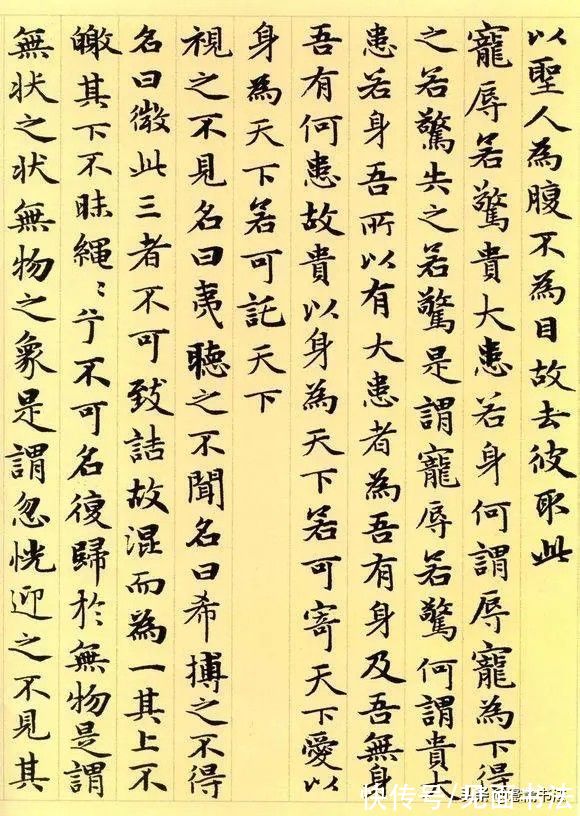 以聖人為腹不為目故去彼取此
寵辱若驚貴大患若身何謂辱寵為下得
之若驚失之若驚是謂寵辱若驚何謂貴大
患若身吾所以有大患者為吾有身及吾無身
吾有何患故貴以身為天下若可寄天下愛以
身為天下若可託天下
視之不見名曰夷聽之不聞名曰希搏之不得
名曰微此三者不可致詰故混而為一其上不
皦其下不昧繩〻兮不可名復歸於無物是謂
無状之状無物之象是謂忽恍迎之不見其
快传号/
书法